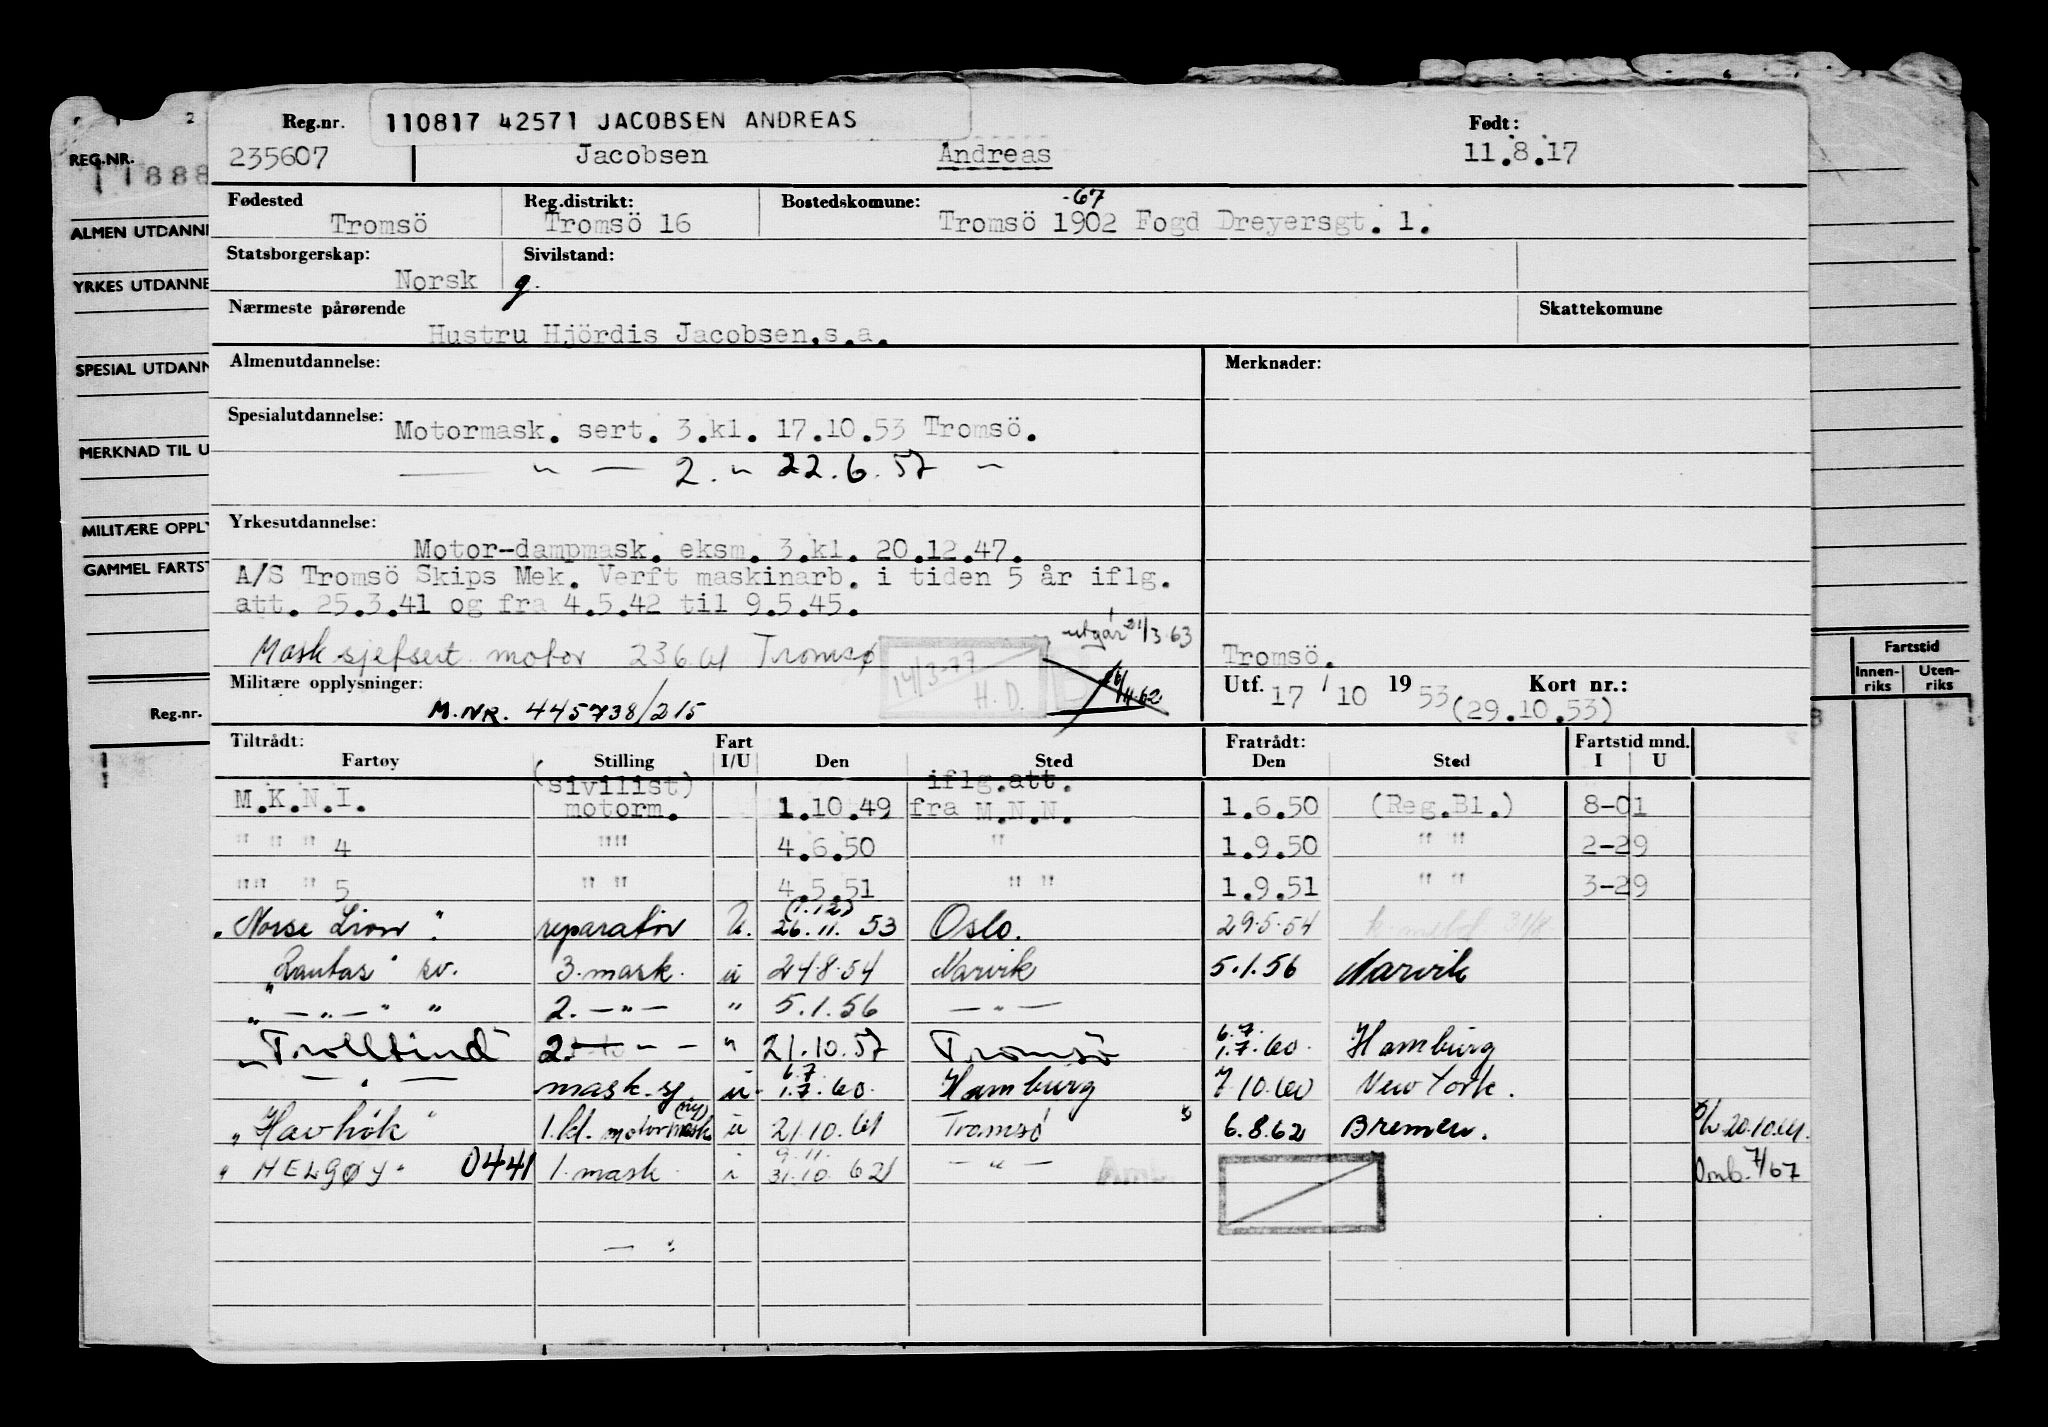 Reg.nr. 110817 42571 JACOBSEN ANDREAS Født:
235607 Jacobsen Andreas 11.8.17
REG.NR.
11888
Fødested Reg.distrikt: Bostedskomune: -67
Tromsö Tromsö 16 Tromsö 1902 Fogd Dreyersgt. 1.
ALMEN UTDANNE
Statsborgerskap: Sivilstand:
Norsk g.
YRKES UTDANNE
Nærmeste pårørende Skattekomune
Hustru Hjördis Jacobsen.s.a.
Almenutdannelse: Merknader:
SPESIAL UTDANN
Spesialutdannelse: Motormask. sert. 3.kl. 17.10.53 Tromsö.
MERKNAD TIL U
— " — 2. " 22.6.57 "
Yrkesutdannelse:
MILITÆRE OPPLY
Motor-dampmask. eksm. 3.kl. 20.12.47.
GAMMEL FARTST
A/S Tromsö Skips Mek. Verft maskinarb. i tiden 5 år iflg.
att. 25.3.41 og fra 4.5.42 til 9.5.45.
utgår 21/3.63
Mask sjefsert motor 23.6.61 Tromsø
14/3-77 H.D.
16/11.62
Tromsö.
Militære opplysninger: Utf. 17 / 10 19 53 Kort nr.:
M.NR. 445738/215 (29.10.53)
Fartstid
Innen- riks Uten- riks
Reg.nr.
Tiltrådt: Fart Fratrådt: Fartstid mnd.
Fartøy Stilling I/U Den Sted Den Sted I U
(sivilist) iflg.att.
M.K.N.I. motorm. 1.10.49 fra M.N.N. 1.6.50 (Reg.Bl.) 8-01
" " " 4 "" 4.6.50 " 1.9.50 " " 2-29
"" " 5 " " 4.5.51 " " 1.9.51 " " 3-29
(1.12)
"Norse Lion" reparatör U. 26.11.53 Oslo. 29.5.54
"Rautas" sv. 3. mask. u 24.8.54 Narvik 5.1.56 Narvik
" — " — " " 2. — " — " 5.1.56 — " —
6.7.
"Trolltind" 2. — " — " 21.10.57 Tromsö 1.7.60. Hamburg
6.7
— " — mask.sj u. 1.7.60. Hamburg 7.10.60 New York.
"Havhök" 1.kl. motormask u 21.10.61 Tromsö 6.8.62 Bremen. 20.10.61.
9.11.
"HELGØY" 0441 1. mask. i 31.10.62 — " — Omb. 7/67
— "